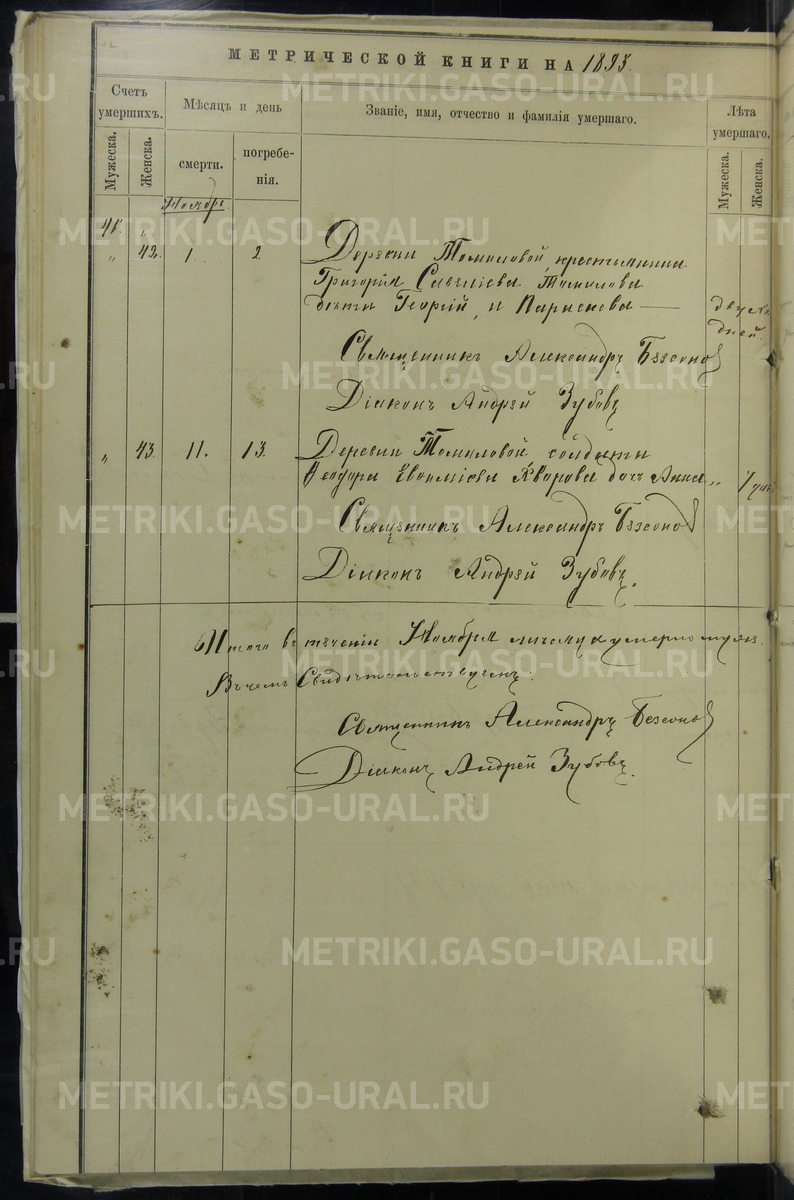 МЕТРИЧЕСКОЙ КНИГИ НА 1893.
Счетъ умершихъ.
Мужеска.
Женска.
Мѣсяцъ и день
смерти.
погребе-
нія.
Званіе, имя, отчество и фамилія умершаго.
Лѣта умершаго.
Мужеска.
Женска.
Ноябрь
" 42. 1. 2 Деревни Томиловой крестьянина
Григорія Савеліева Томилова
дѣти Георгій, и Параскева — двухъ
дней.
Священникъ Александръ Бессоно
Діаконъ Андрей Зубовъ
" 43. 11. 13. Деревни Томиловой, солдата
Ѳеодора дочь Анна "
Священникъ Александръ Бессоно
Діаконъ Андрей Зубовъ.
Итого въ теченіи Ноября
Въ чемъ Свидѣтельствуемъ:
Священникъ Александръ Бессоно
Діаконъ Андрей Зубовъ.
METRIKI.GASO-URAL.RU